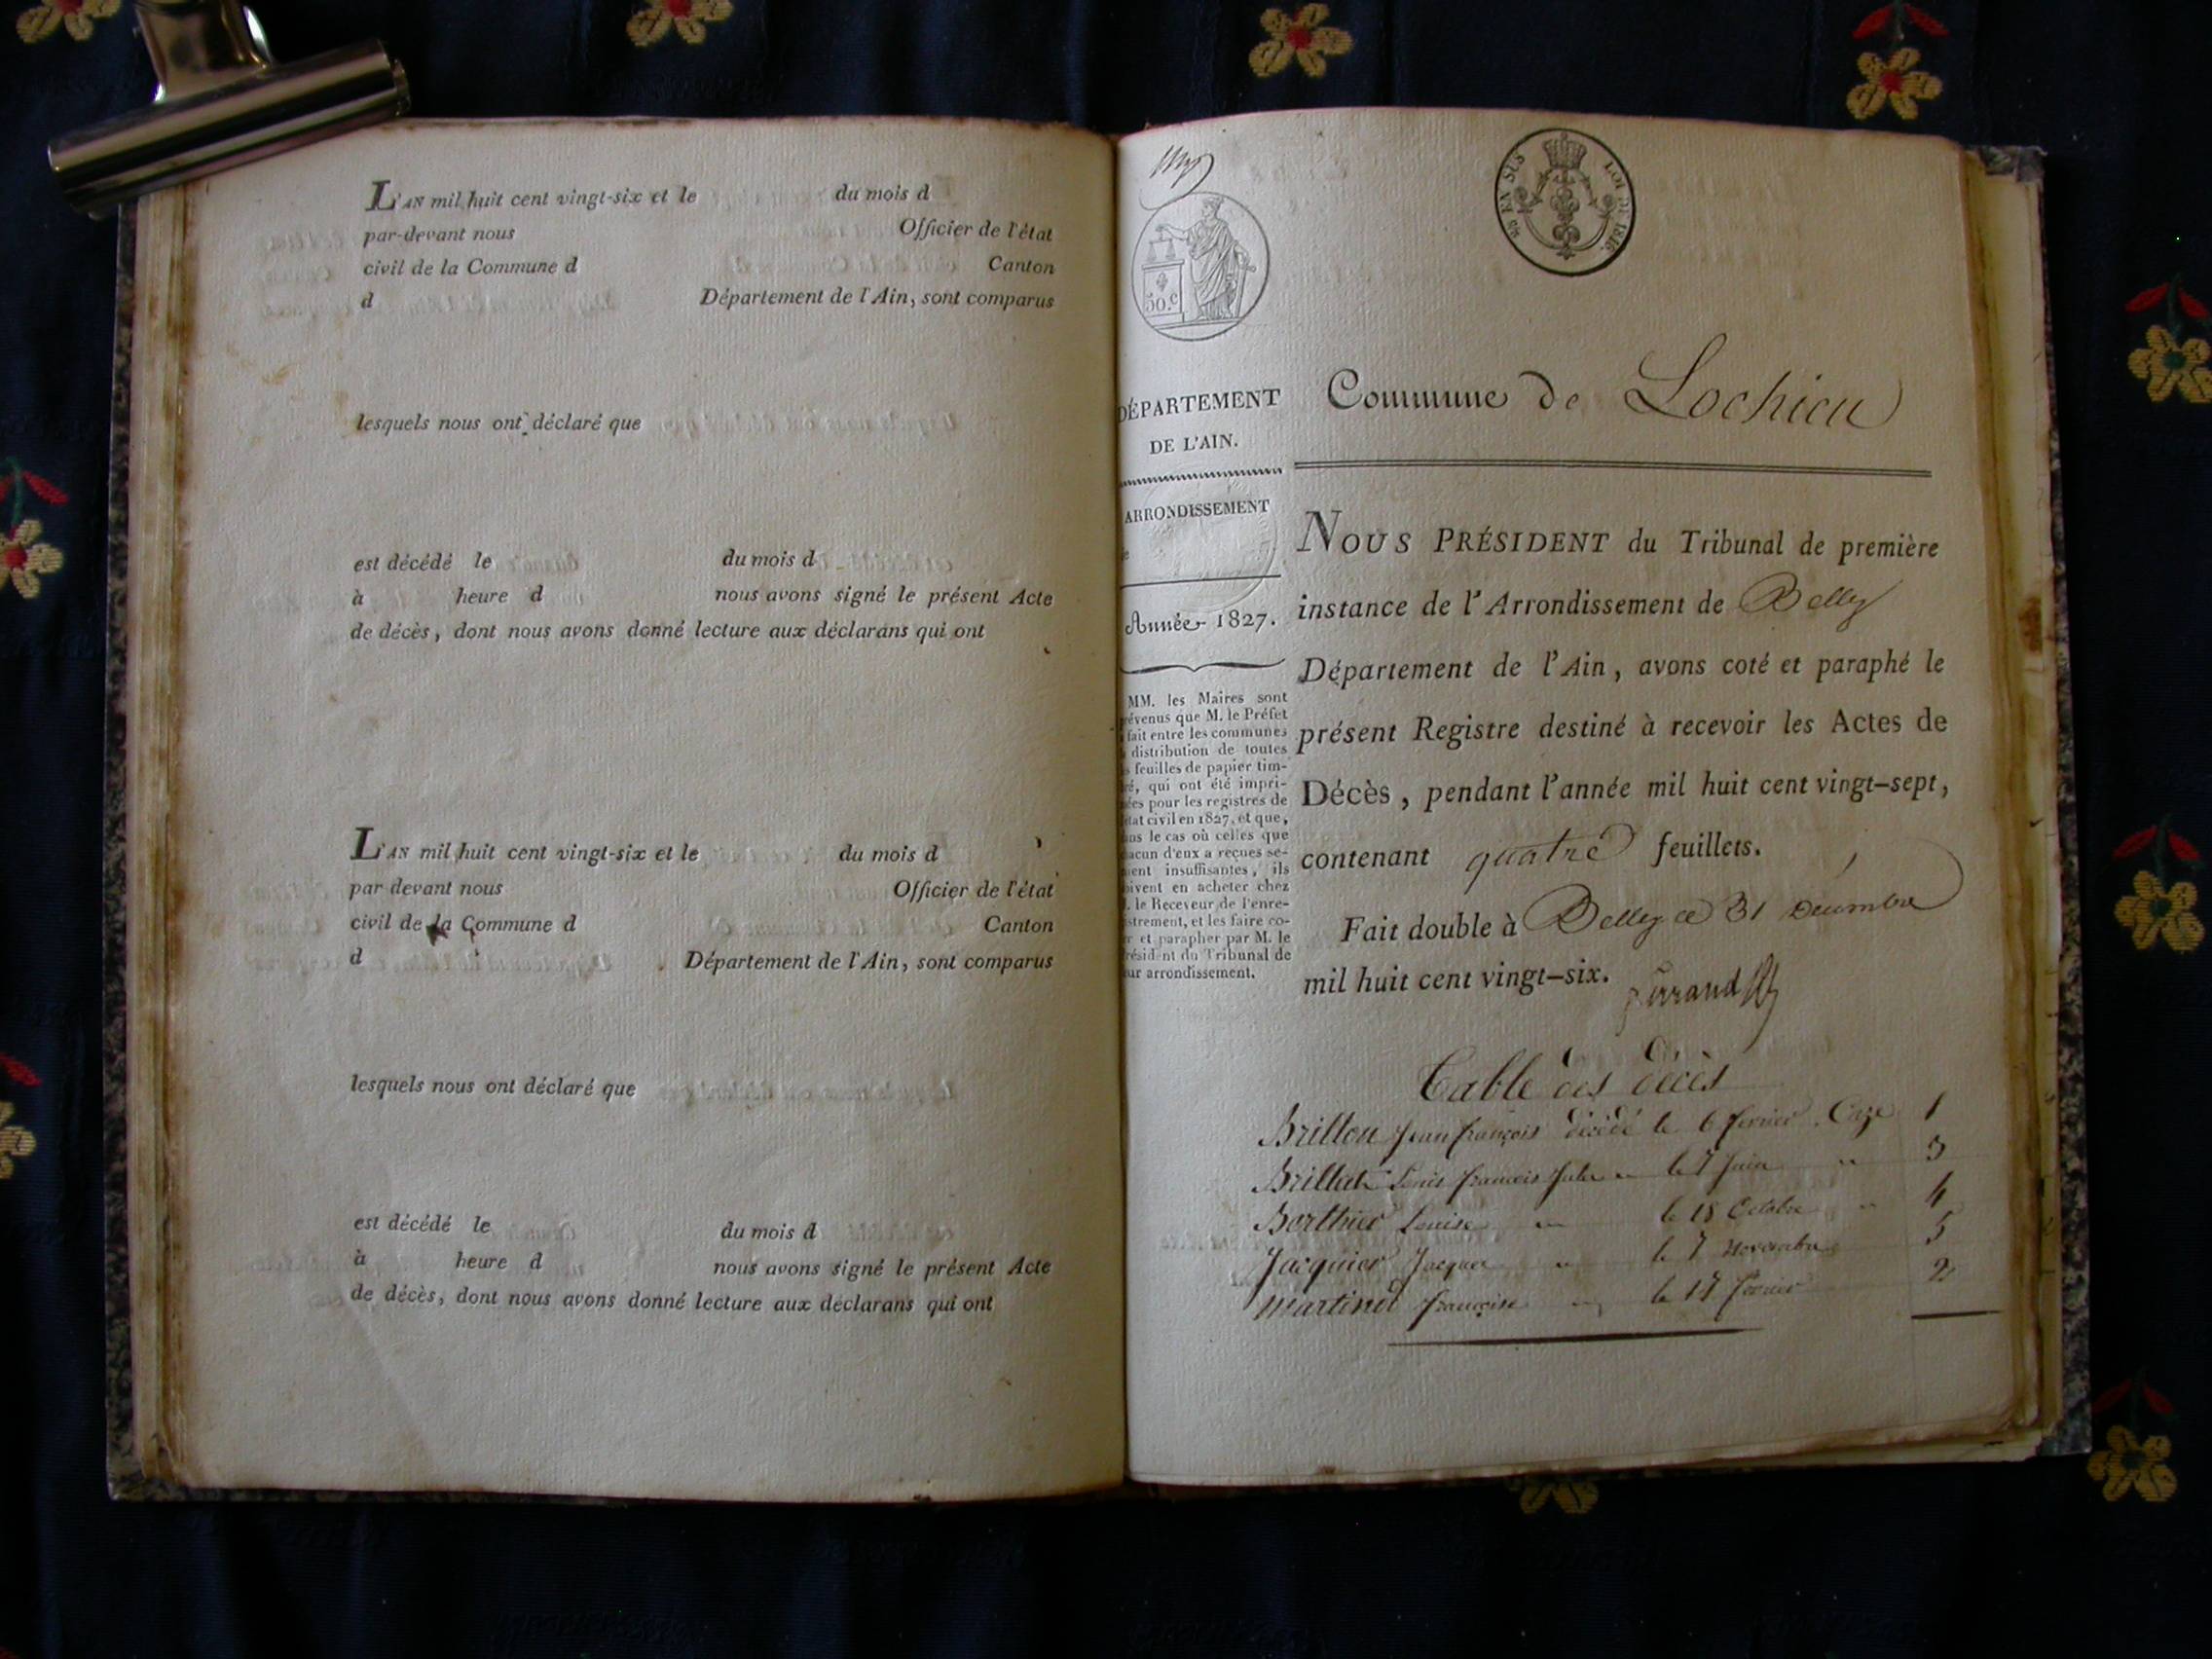 L'AN mil huit cent vingt-six et le du mois d
par-devant nous Officier de l'état
civil de la Commune d Canton
d Département de l'Ain, sont comparus
lesquels nous ont déclaré que
est décédé le du mois d
à heure d nous avons signé le présent Acte
de décès, dont nous avons donné lecture aux déclarans qui ont
L'AN mil huit cent vingt-six et le du mois d
par-devant nous Officier de l'état
civil de la Commune d Canton
d Département de l'Ain, sont comparus
lesquels nous ont déclaré que
est décédé le du mois d
à heure d nous avons signé le présent Acte
de décès, dont nous avons donné lecture aux déclarans qui ont
EN SUS LOI DE 1816.
50.c
DÉPARTEMENT
DE L'AIN.
ARRONDISSEMENT
Année 1827.
MM. les Maires sont
évenus que M. le Préfet
fait entre les communes
distribution de toutes
feuilles de papier tim-
é, qui ont été impri-
ées pour les registres de
tat civil en 1827, et que,
ns le cas où celles que
acun d'eux a reçues se-
ient insuffisantes, ils
ivent en acheter chez
. le Receveur de l'enre-
strement, et les faire co-
r et parapher par M. le
résident du Tribunal de
ur arrondissement.
Commune de Lochieu
NOUS PRÉSIDENT du Tribunal de première
instance de l'Arrondissement de Belley
Département de l'Ain, avons coté et paraphé le
présent Registre destiné à recevoir les Actes de
Décès, pendant l'année mil huit cent vingt-sept,
contenant quatre feuillets.
Fait double à Belley ce 31 Décembre
mil huit cent vingt-six.
Table des décès
Brillon Jean françois décédé le 6 fevrier 1
Brillat Louis francois Jules " le 7 Juin " 3
Berthier Louise " le 18 Octobre " 4
Jacquier Jacques " le 7 Novembre 5
Martinet françoise le 17 fevrier 2